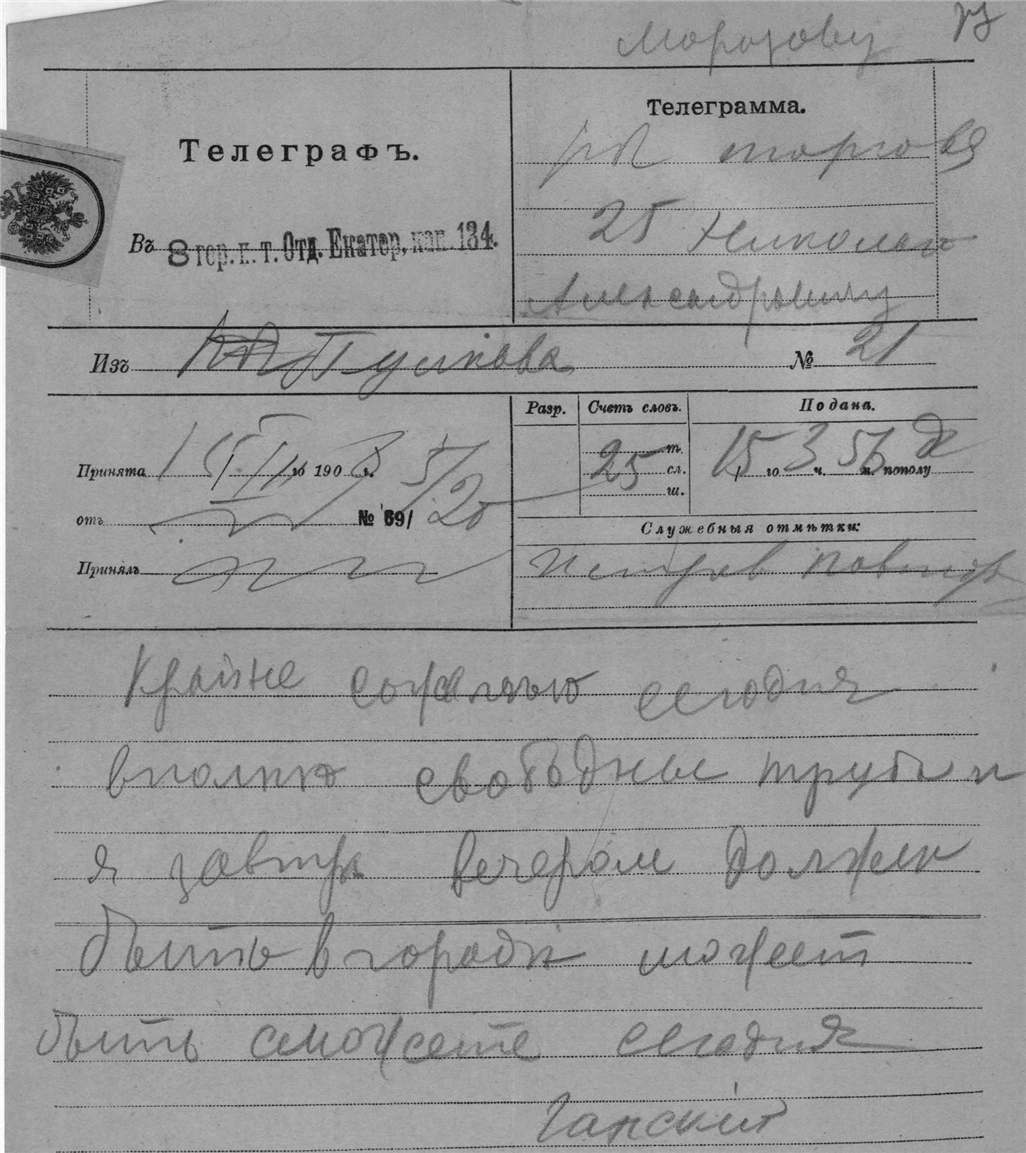 Морозову
Телеграфъ.
Въ 8 гор. п. т. Отд. Екатер. кан. 134.
Телеграмма.
торговая
25 Николаю
Александровичу
Изъ Пулкова № 21
Принята 15/III го 1908 г. 5/20
отъ № 69/
Принялъ
Разр. Счетъ словъ. Подана.
25 т. сл. ш.
15 го 3 ч. 56 м. пополу д
Служебныя отмѣтки:
Крайне сожалѣю сегодня
вполнѣ свободные трубы и
я завтра вечером должен
быть в городѣ может
быть сможете сегодня
Ганский